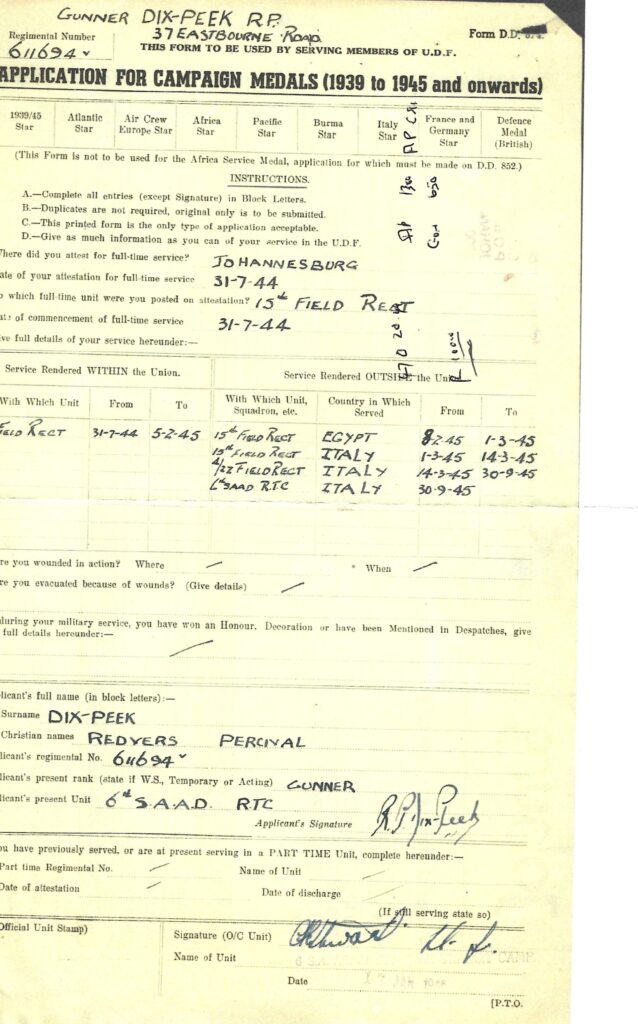 GUNNER DIX-PEEK R.P.
Regimental Number 37 EASTBOURNE ROAD Form D.D.
611694 THIS FORM TO BE USED BY SERVING MEMBERS OF U.D.F.
APPLICATION FOR CAMPAIGN MEDALS (1939 to 1945 and onwards)
1939/45 Star Atlantic Star Air Crew Europe Star Africa Star Pacific Star Burma Star Italy Star France and Germany Star Defence Medal (British)
(This Form is not to be used for the Africa Service Medal, application for which must be made on D.D. 852.)
INSTRUCTIONS.
A.—Complete all entries (except Signature) in Block Letters.
B.—Duplicates are not required, original only is to be submitted.
C.—This printed form is the only type of application acceptable.
D.—Give as much information as you can of your service in the U.D.F.
here did you attest for full-time service? JOHANNESBURG
ate of your attestation for full-time service 31-7-44
o which full-time unit were you posted on attestation? 15th FIELD REGT
ate of commencement of full-time service 31-7-44
ve full details of your service hereunder:—
Service Rendered WITHIN the Union. Service Rendered OUTSIDE the Uni
With Which Unit From To With Which Unit, Squadron, etc. Country in Which Served From To
FIELD REGT 31-7-44 5-2-45 15th FIELD REGT EGYPT 8-2-45 1-3-45
15th FIELD REGT ITALY 1-3-45 14-3-45
4/22 FIELD REGT ITALY 14-3-45 30-9-45
6th SAAD RTC ITALY 30-9-45
re you wounded in action? Where — When —
re you evacuated because of wounds? (Give details) —
during your military service, you have won an Honour. Decoration or have been Mentioned in Despatches, give
full details hereunder:—
licant's full name (in block letters):—
Surname DIX-PEEK
Christian names REDVERS PERCIVAL
licant's regimental No. 611694
licant's present rank (state if W.S., Temporary or Acting) GUNNER
licant's present Unit 6th S.A.A.D. RTC
Applicant's Signature R.P. Dix-Peek
ou have previously served, or are at present serving in a PART TIME Unit, complete hereunder:—
Part time Regimental No. — Name of Unit —
Date of attestation — Date of discharge
(If still serving state so)
Official Unit Stamp) Signature (O/C Unit)
Name of Unit
Date
[P.T.O.